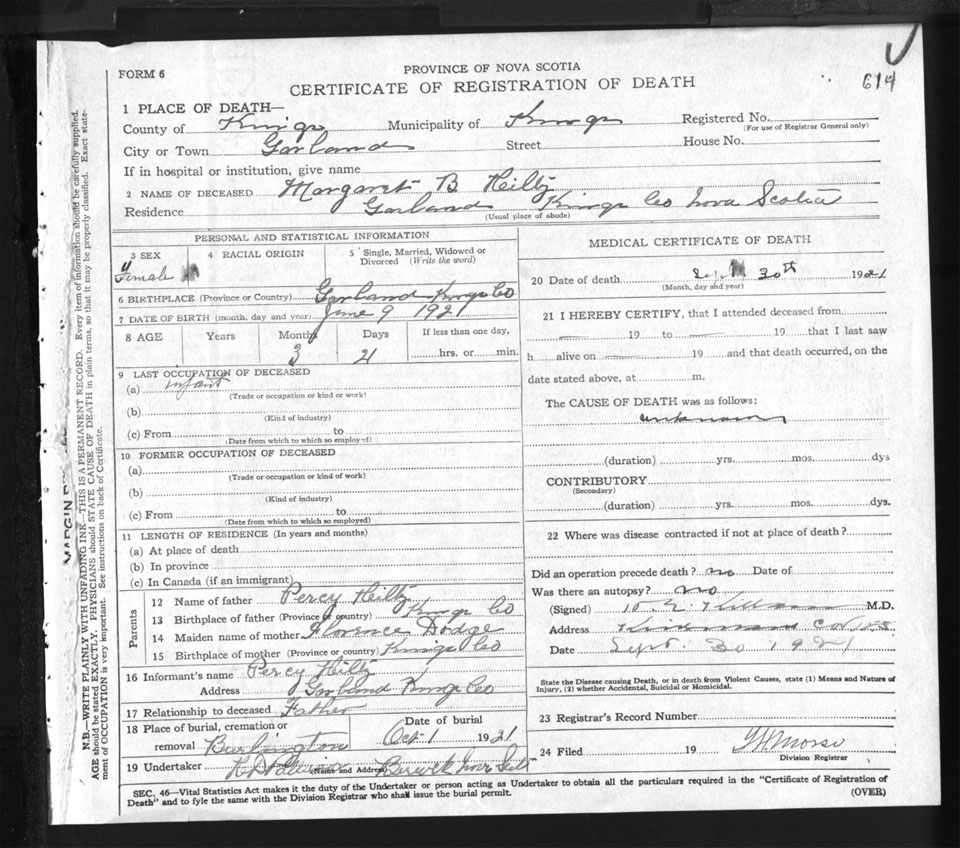 614
FORM 6
PROVINCE OF NOVA SCOTIA
CERTIFICATE OF REGISTRATION OF DEATH
1 PLACE OF DEATH—
County of Kings Municipality of Kings Registered No.
(For use of Registrar General only)
City or Town Garland Street House No.
If in hospital or institution, give name
2 NAME OF DECEASED Margaret B Hiltz
Residence Garland Kings Co Nova Scotia
(Usual place of abode)
PERSONAL AND STATISTICAL INFORMATION
3 SEX 4 RACIAL ORIGIN 5 Single, Married, Widowed or Divorced (Write the word)
Female
6 BIRTHPLACE (Province or Country) Garland Kings Co
7 DATE OF BIRTH (month, day and year) June 9 1921
8 AGE Years Months Days If less than one day,
3 21 hrs. or min.
9 LAST OCCUPATION OF DECEASED
(a) infant
(Trade or occupation or kind or work)
(b)
(Kind of industry)
(c) From to
(Date from which to which so employed)
10 FORMER OCCUPATION OF DECEASED
(a)
(Trade or occupation or kind of work)
(b)
(Kind of industry)
(c) From to
(Date from which to which so employed)
11 LENGTH OF RESIDENCE (In years and months)
(a) At place of death
(b) In province
(c) In Canada (if an immigrant)
Parents
12 Name of father Percy Hiltz
13 Birthplace of father (Province or country) Kings Co
14 Maiden name of mother Florence Dodge
15 Birthplace of mother (Province or country) Kings Co
16 Informant's name Percy Hiltz
Address Garland Kings Co
17 Relationship to deceased Father
18 Place of burial, cremation or removal Burlington Date of burial Oct 1 1921
19 Undertaker Berwick Nova Scotia
(Name and Address)
MEDICAL CERTIFICATE OF DEATH
20 Date of death 30th 1921
(Month, day and year)
21 I HEREBY CERTIFY, that I attended deceased from
19 to 19 that I last saw
h alive on 19 and that death occurred, on the
date stated above, at m.
The CAUSE OF DEATH was as follows:
unknown
(duration) yrs. mos. dys
CONTRIBUTORY
(Secondary)
(duration) yrs. mos. dys.
22 Where was disease contracted if not at place of death?
Did an operation precede death? no Date of
Was there an autopsy? no
(Signed) M.D.
Address
Date Sept. 30 1921
State the Disease causing Death, or in death from Violent Causes, state (1) Means and Nature of
Injury, (2) whether Accidental, Suicidal or Homicidal.
23 Registrar's Record Number
24 Filed 19 Morse
Division Registrar
SEC. 46—Vital Statistics Act makes it the duty of the Undertaker or person acting as Undertaker to obtain all the particulars required in the "Certificate of Registration of
Death" and to fyle the same with the Division Registrar who shall issue the burial permit. (OVER)
N.B.—WRITE PLAINLY WITH UNFADING INK—THIS IS A PERMANENT RECORD. Every item of information should be carefully supplied.
AGE should be stated EXACTLY. PHYSICIANS should STATE CAUSE OF DEATH in plain terms, so that it may be properly classified. Exact state-
ment of OCCUPATION is very important. See instructions on back of Certificate.